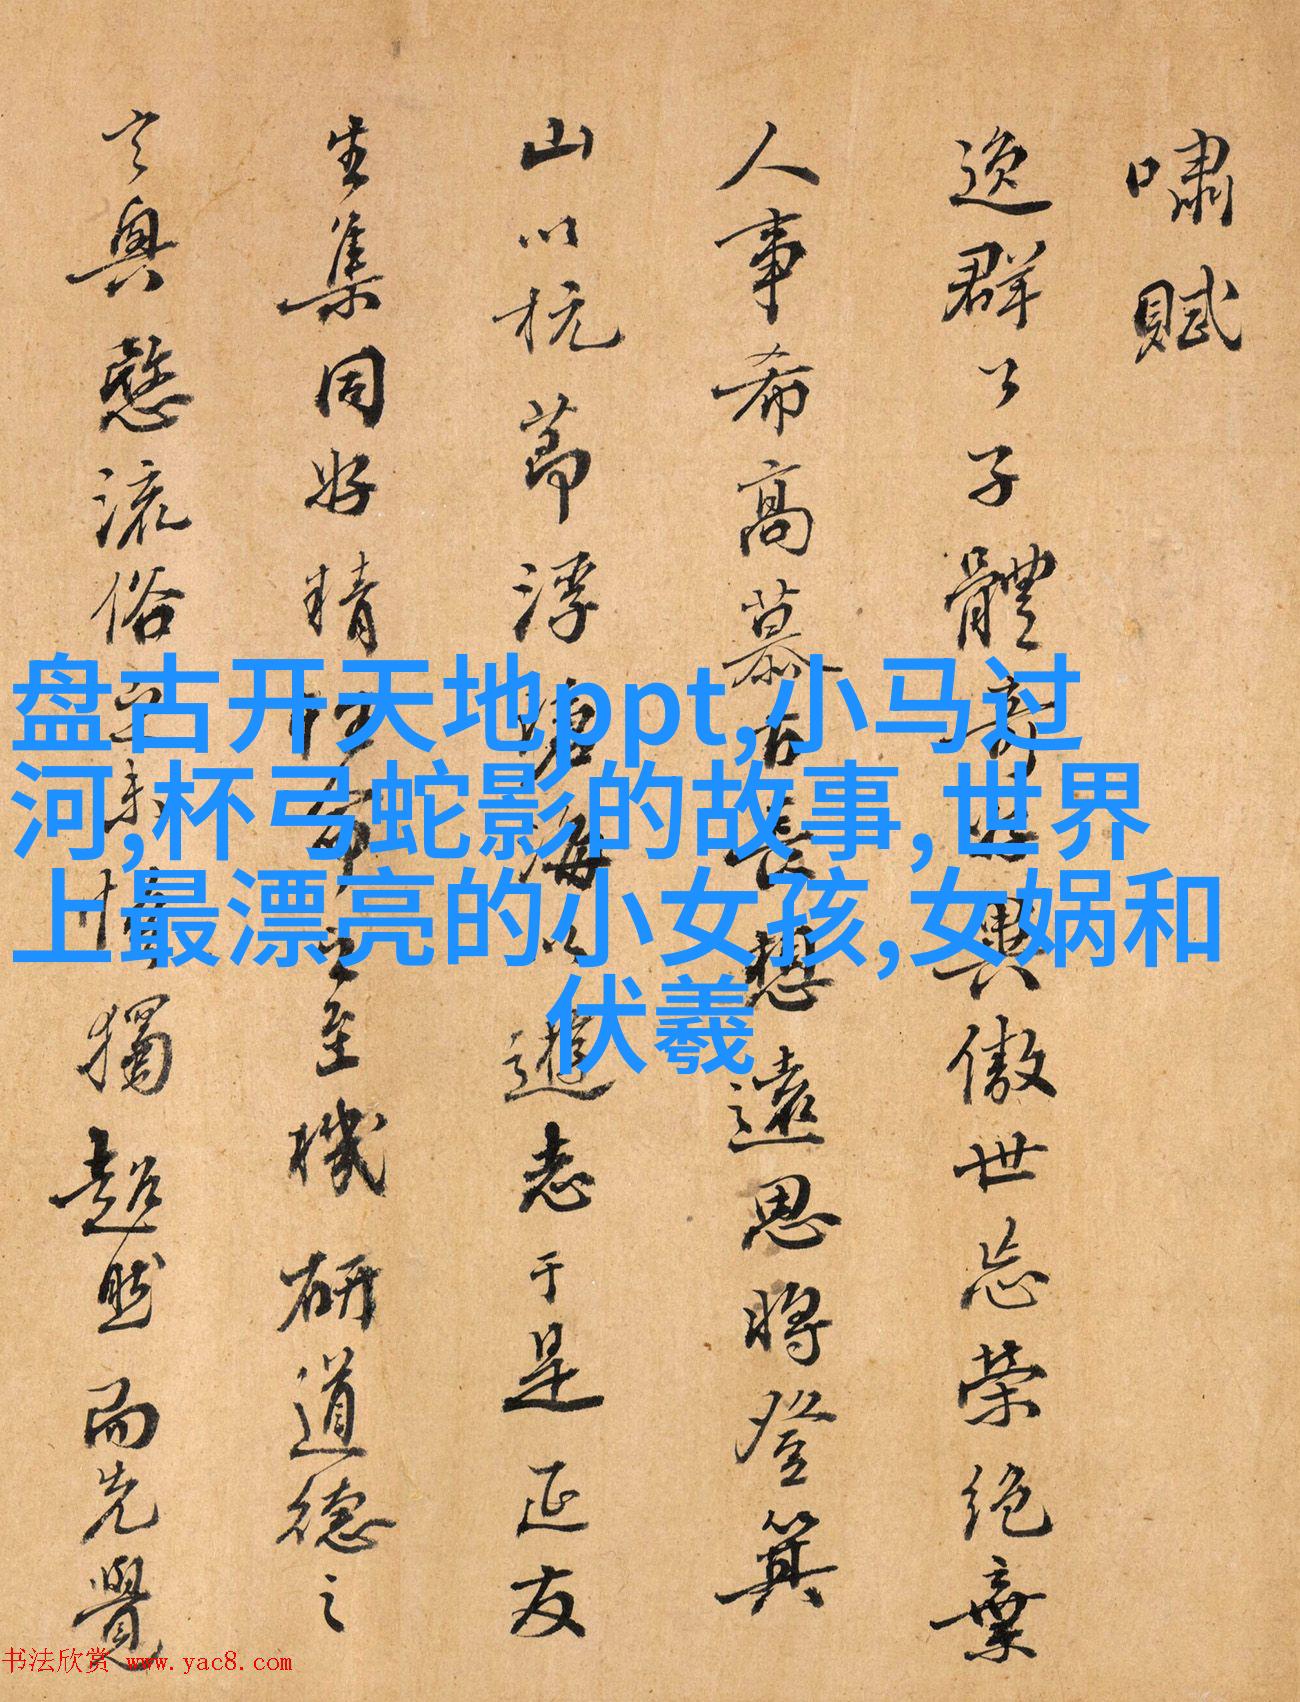 嘯賦
逸群公子體奇好異傲世忘榮絕棄
人事希高慕古長想遠思將登箕
山以抗節浮滄海以遊志于是延友
生集同好精性命之至機研道德之
玄奧愍流俗之未悟獨超然而先覺
盘古开天地ppt,小马过
河,杯弓蛇影的故事,世界
上最漂亮的小女孩,女娲和
伏羲
书法欣赏 www.yac8.com